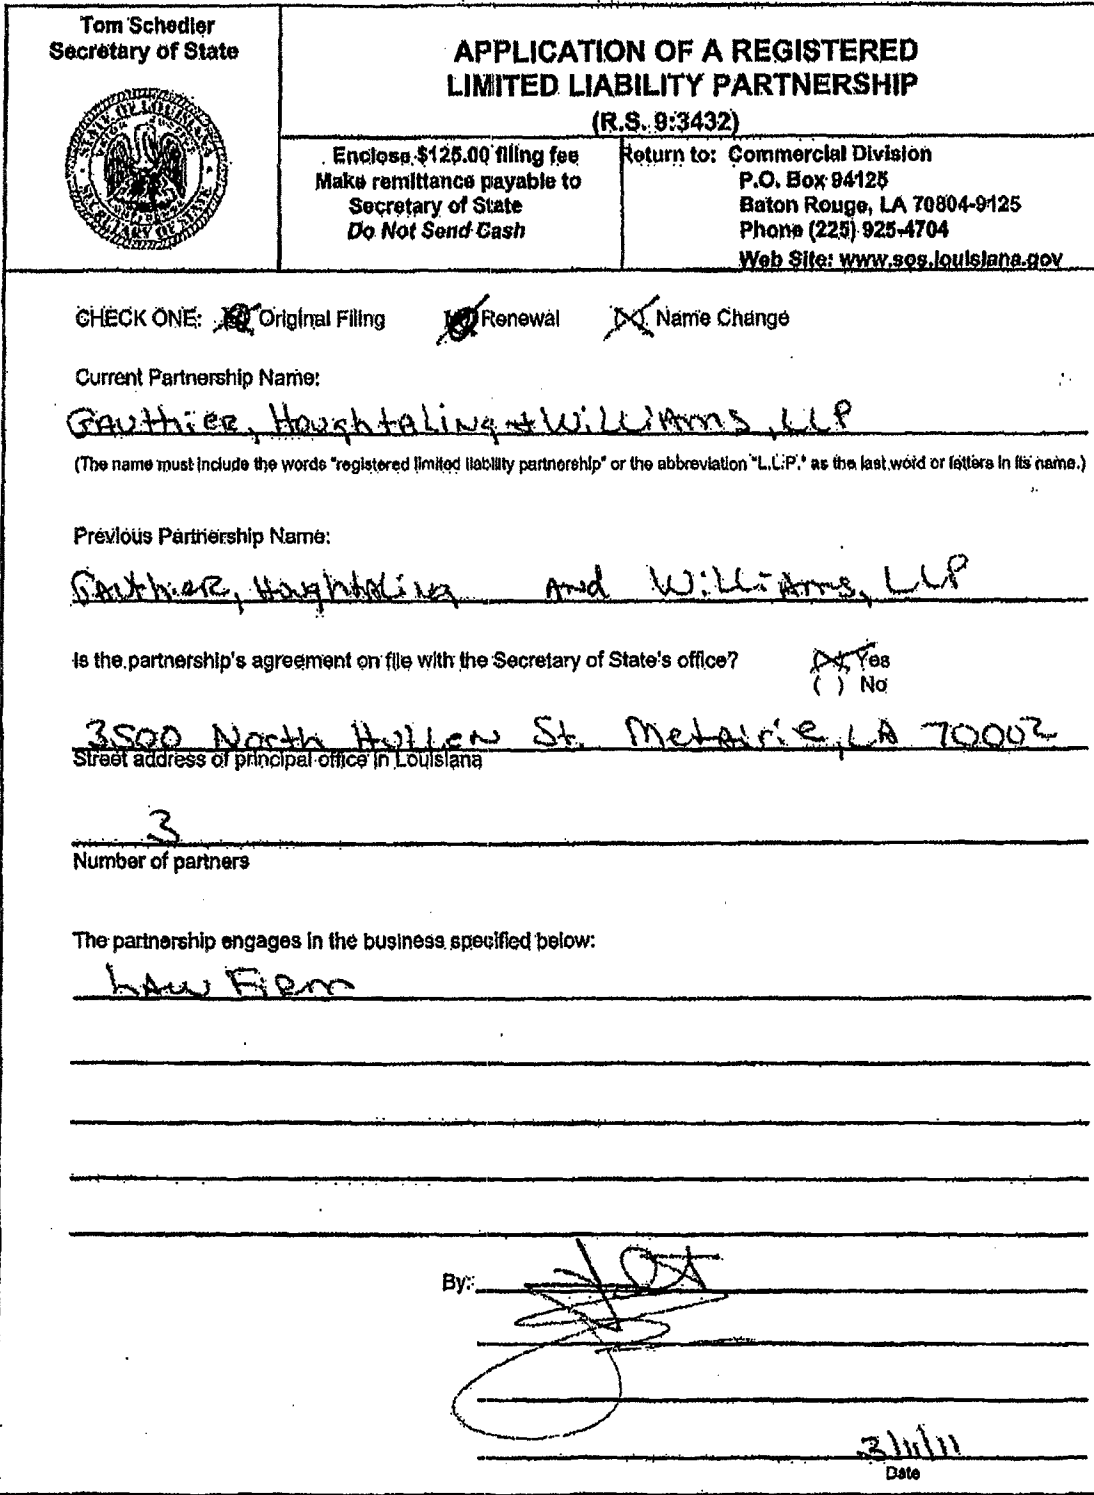 Tom Schedler
Secretary of State
STATE OF LOUISIANA
SECRETARY OF STATE
APPLICATION OF A REGISTERED
LIMITED LIABILITY PARTNERSHIP
(R.S. 9:3432)
Enclose $125.00 filing fee
Make remittance payable to
Secretary of State
Do Not Send Cash
Return to: Commercial Division
P.O. Box 94125
Baton Rouge, LA 70804-9125
Phone (225) 925-4704
Web Site: www.sos.louisiana.gov
CHECK ONE: Original Filing Renewal Name Change
Current Partnership Name:
Gauthier, Houghtaling + Williams, LLP
(The name must include the words "registered limited liability partnership" or the abbreviation "L.L.P." as the last word or letters in its name.)
Previous Partnership Name:
Gauthier, Houghtaling and Williams, LLP
Is the partnership's agreement on file with the Secretary of State's office? Yes
( ) No
3500 North Hullen St. Metairie, LA 70002
Street address of principal office in Louisiana
3
Number of partners
The partnership engages in the business specified below:
Law Firm
By:
3/11/11
Date